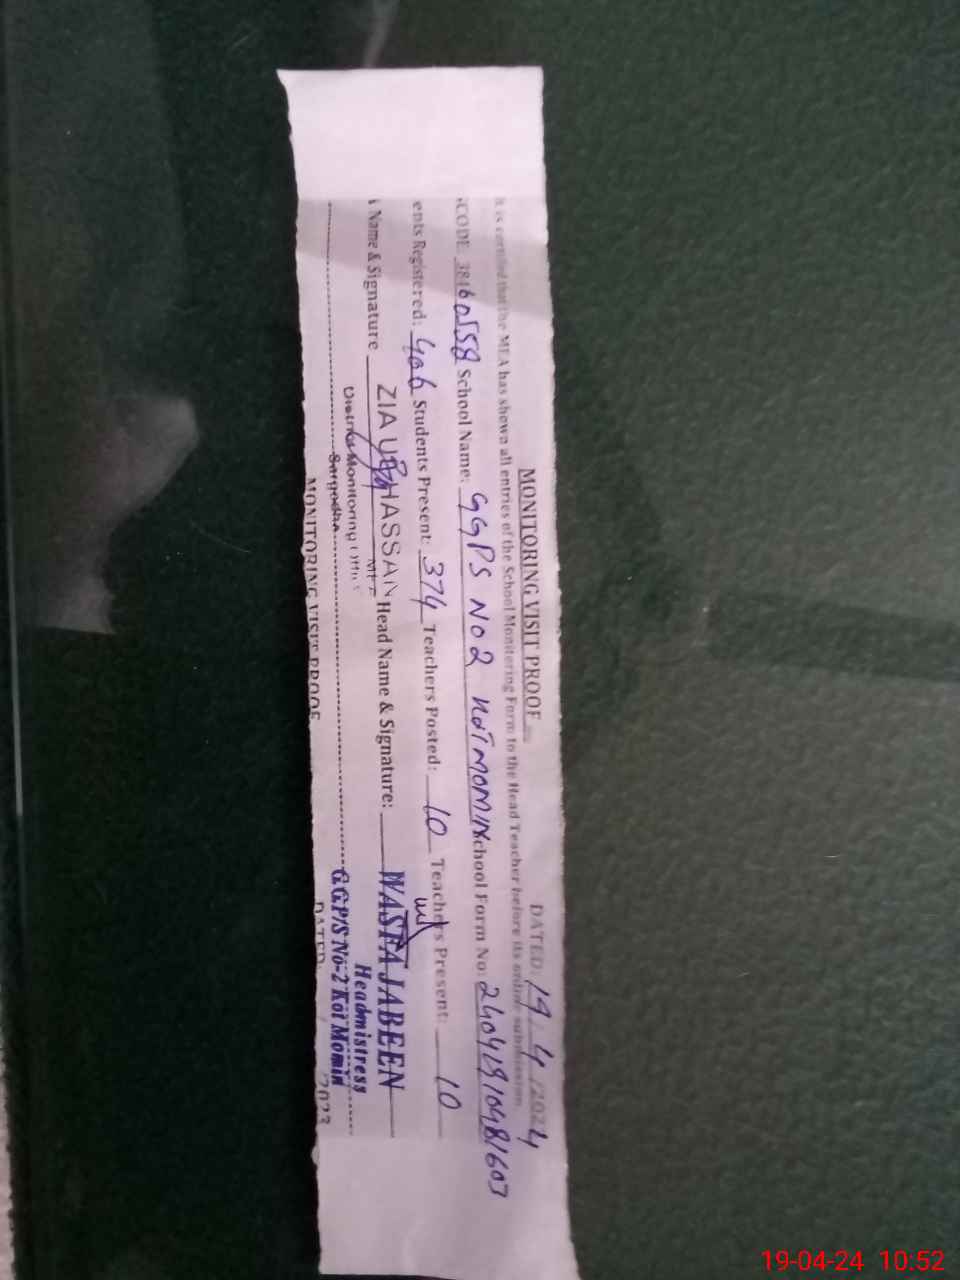 MONITORING VISIT PROOF
DATED: 19/4/2024
It is certified that the MEA has shown all entries of the School Monitoring Form to the Head Teacher before its online submission.
CODE 38160558 School Name: GGPS NO 2 KOT MOMIN School Form No:
ents Registered: 406 Students Present: 374 Teachers Posted: 10 Teachers Present: 10
Name & Signature ZIA UL HASSAN Head Name & Signature: WASFA JABEEN
District Monitoring
Headmistress
Sargodha
G.G.P/S No-2 Kot Momin
MONITORING VISIT PROOF
DATED: /2023
19-04-24 10:52